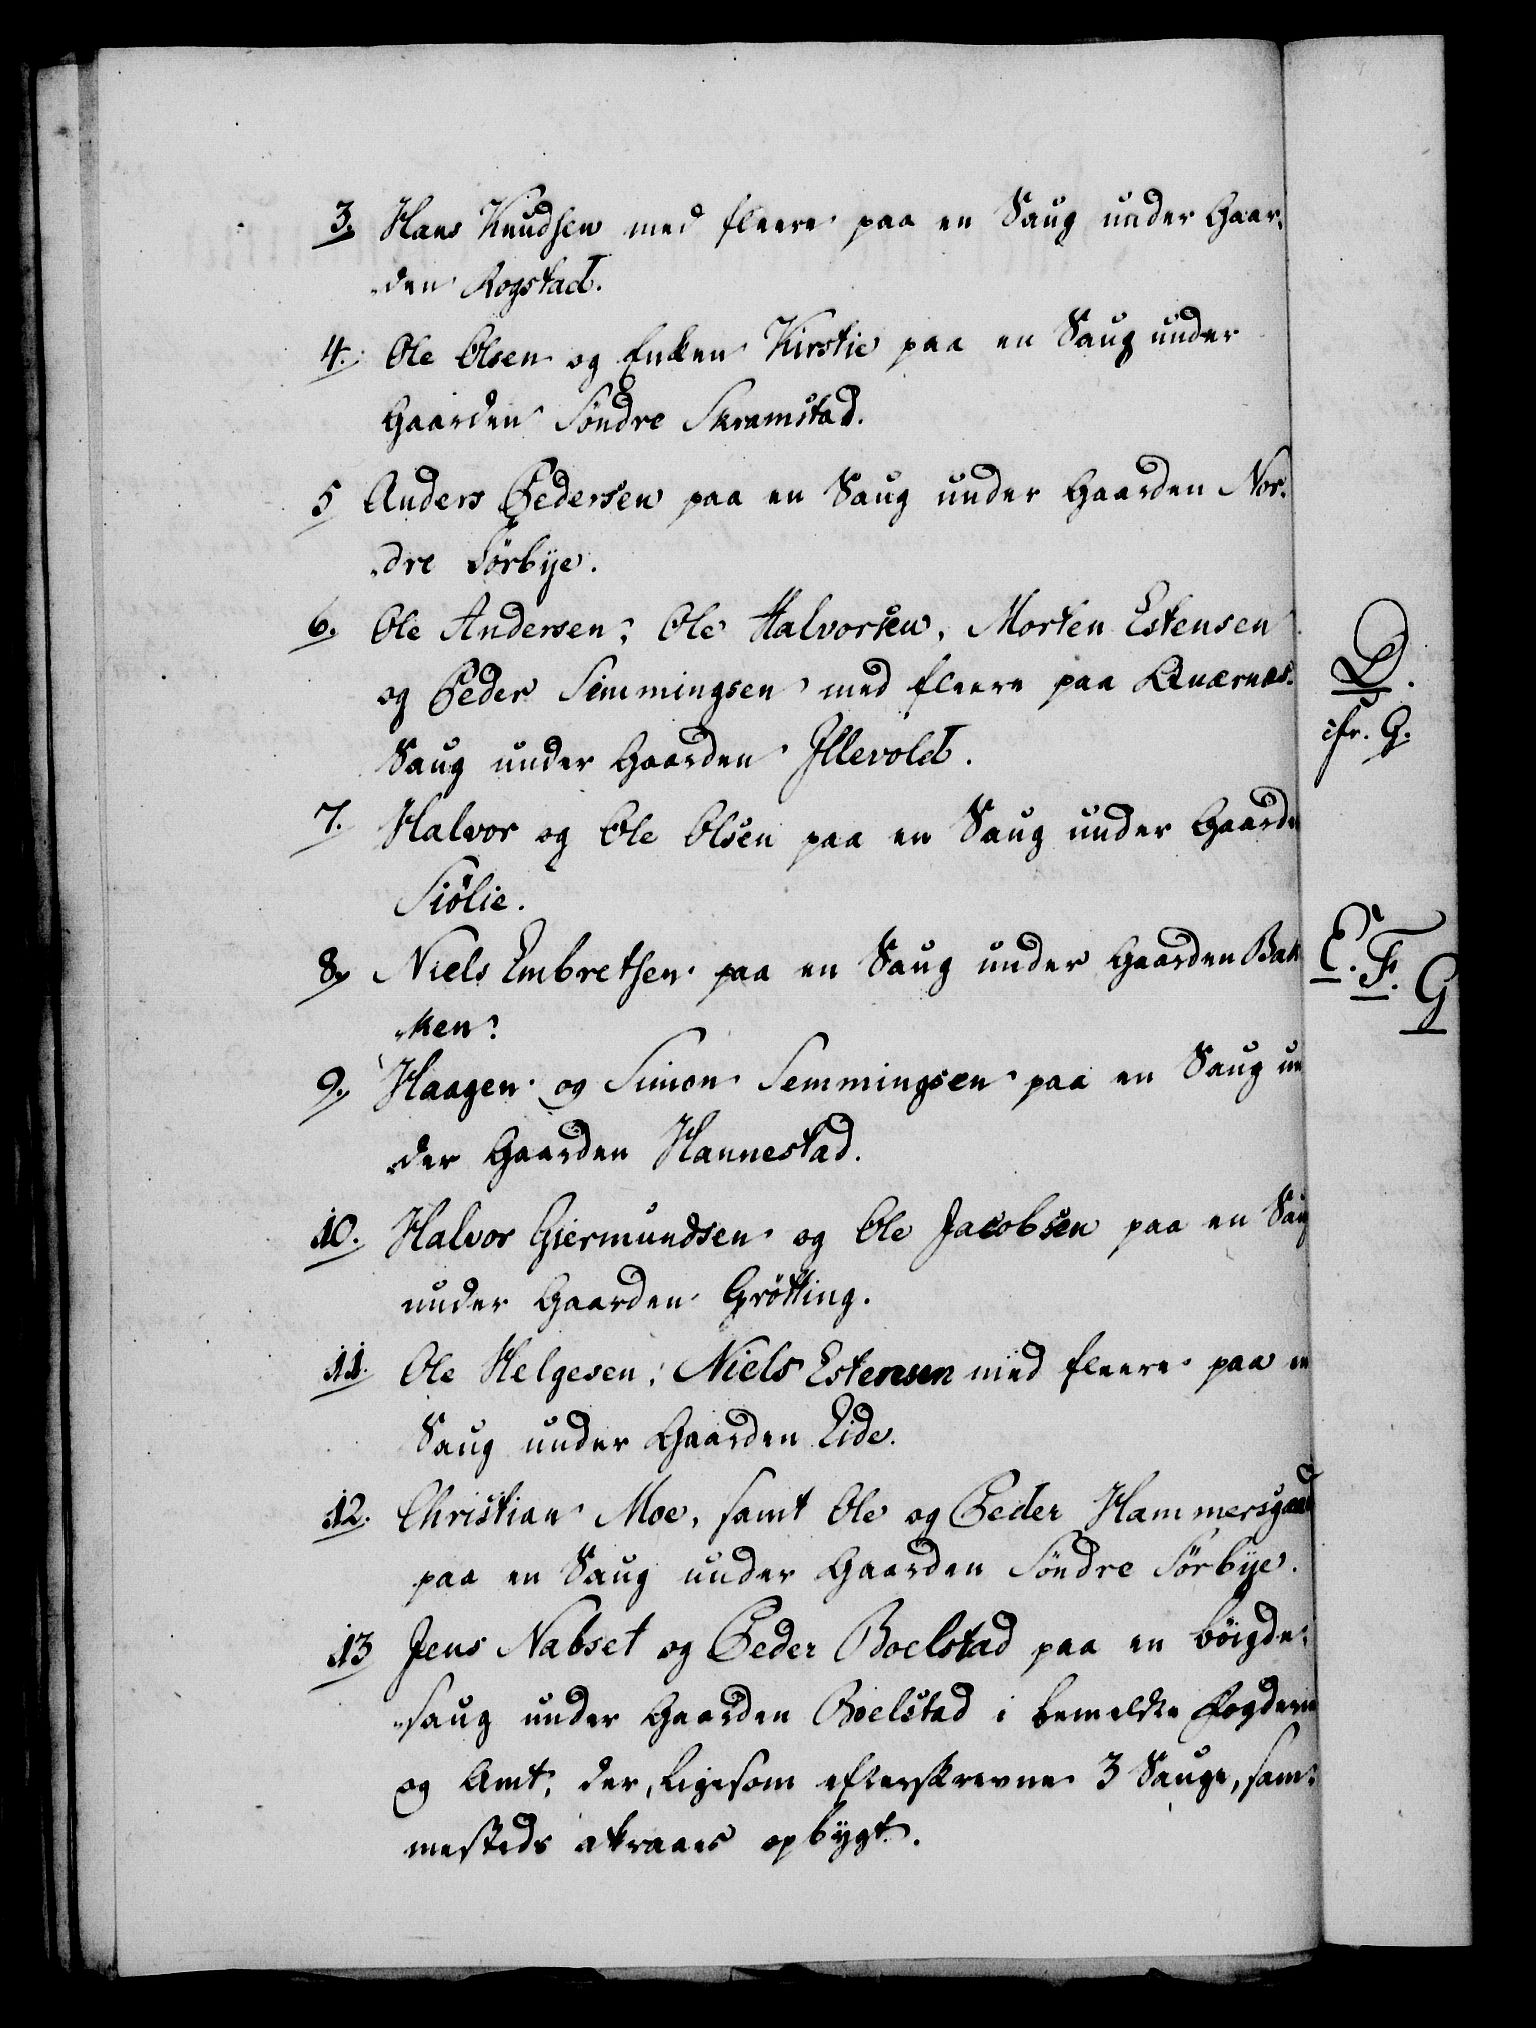 3. Hans Knudsen med fleere paa en Saug under Gaar:
den Rogstad.
4. Ole Olsen og Enken Kirstie paa en Saug under
Gaarden Söndre Skramstad.
5 Anders Pedersen paa en Saug under Gaarden Nor:
dre Sörbÿe.
6. Ole Andersen, Ole Halvorsen, Morten Estensen
og Peder Simmingsen med fleere paa Quærnæs:
Saug under Gaarden Illevold.
7. Halvor og Ole Olsen paa en Saug under Gaarde
Siölie.
8. Niels Embretsen paa en Saug under Gaarden Bak
ken.
9. Haagen og Simon Semmingsen paa en Saug un
der Gaarden Hannestad.
10. Halvor Giermundsen og Ole Jacobsen paa en Saug
under Gaarden Grötting.
11. Ole Helgesen, Niels Estensen med fleere paa en
Saug under Gaarden Eide.
12. Christian Moe, samt Ole og Peder Hammersgaard
paa en Saug under Gaarden Söndre Sörbÿe.
13 Jens Nabset og Peder Boelstad paa en böigde:
saug under Gaarden Boelstad i bemeldte Fogderie
og Amt, der, ligesom efterskrevne 3 Sauge, sam:
mesteds opbÿgt.
D.
cfr. G.
E. F. G